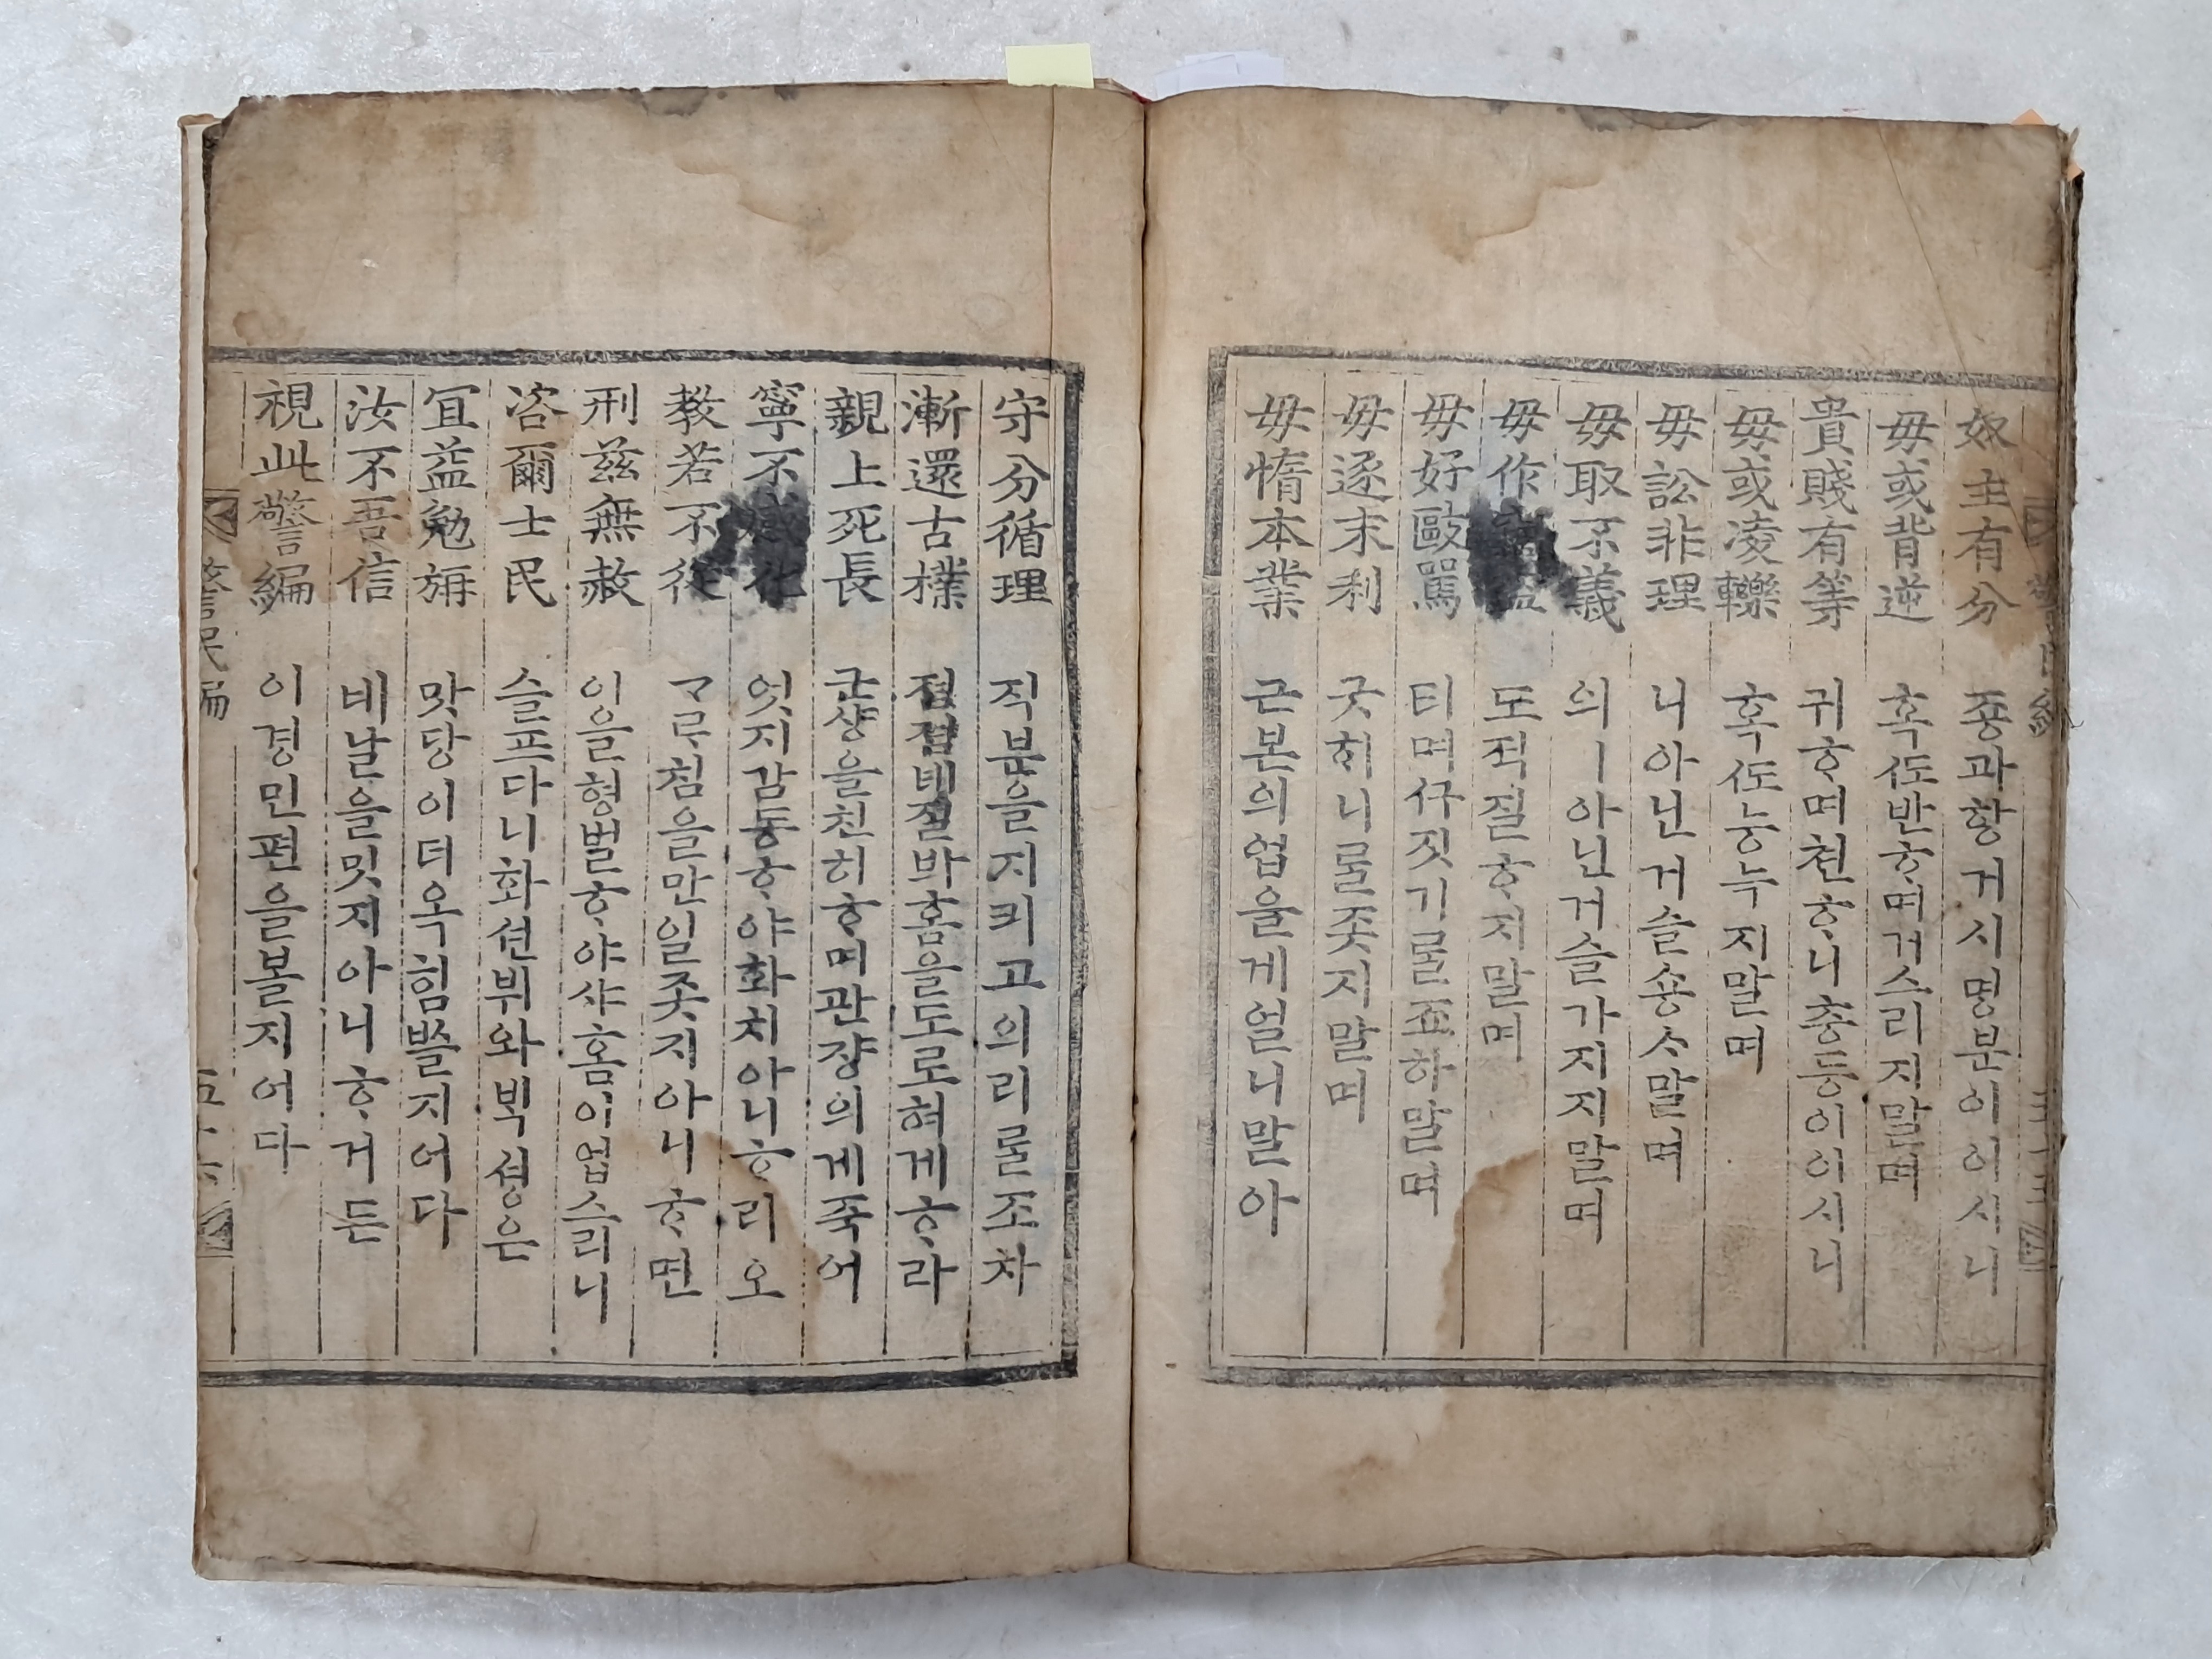 奴主有分 죵과항거시명분이이시니
毋或背逆 혹ᄯᅩ반ᄒᆞ며거스리지말며
貴賤有等 귀ᄒᆞ며쳔ᄒᆞ니층등이이시니
毋或凌轢 혹ᄯᅩ능누지말며
毋訟非理 니아닌거슬숑ᄉᆞ말며
毋取不義 의ㅣ아닌거슬가지지말며
毋作竊盜 도적질ᄒᆞ지말며
毋好敺罵 티며ᄭᅮ짓기ᄅᆞᆯ됴하말며
毋逐末利 긋히니ᄅᆞᆯ좃지말며
毋惰本業 근본의업을게얼니말아
守分循理 직분을지키고의리ᄅᆞᆯ조차
漸還古樸 졈졈녜질박홈을도로혀게ᄒᆞ라
親上死長 군샹을친히ᄒᆞ며관쟝의게죽어
寧不感化 엇지감동ᄒᆞ야화치아니ᄒᆞ리오
敎若不從 ᄀᆞᄅᆞ침을만일좃지아니ᄒᆞ면
刑玆無赦 이을형벌ᄒᆞ야샤홈이업스리니
咨爾士民 슬프다니화션뷔와ᄇᆡᆨ셩은
宜益勉旃 맛당이더옥힘ᄡᅳᆯ지어다
汝不吾信 네날을밋지아니ᄒᆞ거든
視此警編 이경민편을볼지어다
警民編